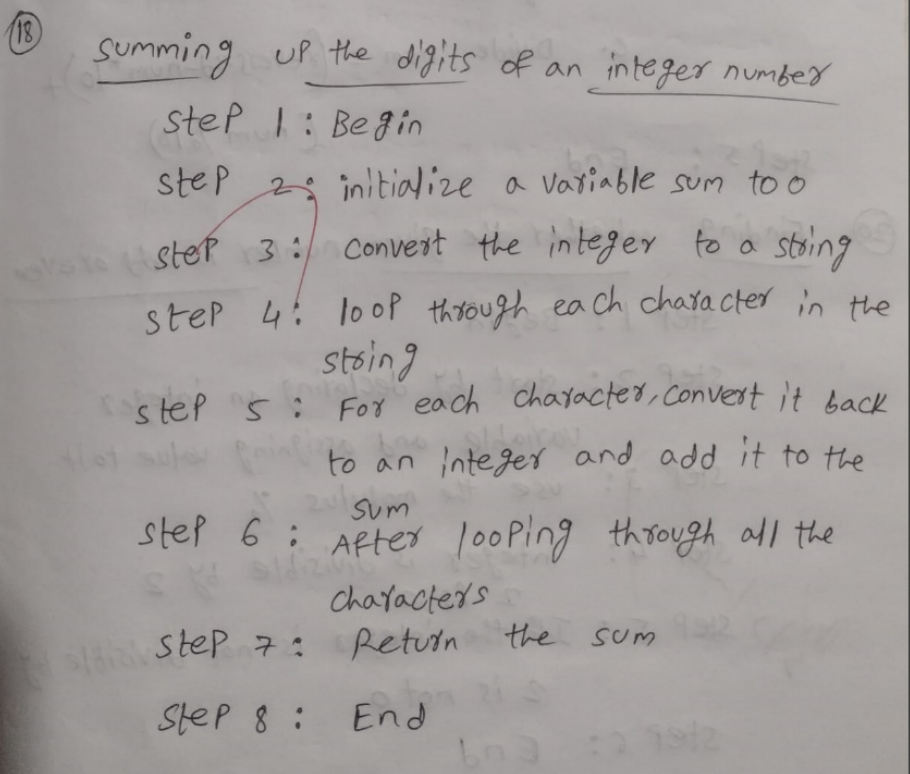 18
summing up the digits of an integer number
step 1 : Begin
step 2 : initialize a variable sum to 0
step 3 : convert the integer to a string
step 4 : loop through each character in the
string
step 5 : For each character, convert it back
to an integer and add it to the
sum
step 6 : After looping through all the
characters
step 7 : Return the sum
step 8 : End